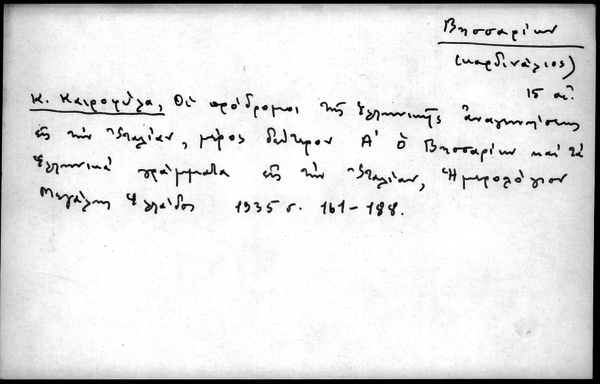 Βησσαρίων
(καρδινάλιος)
15 αἰ.
Κ. Καιροφύλα, Οἱ πρόδρομοι τῆς ἑλληνικῆς ἀναγεννήσεως
εἰς τὴν Ἰταλίαν, μέρος δεύτερον Α' Ὁ Βησσαρίων καὶ τὰ
ἑλληνικὰ γράμματα εἰς τὴν Ἰταλίαν, Ἡμερολόγιον
Μεγάλης Ἑλλάδος 1935 σ. 161-188.